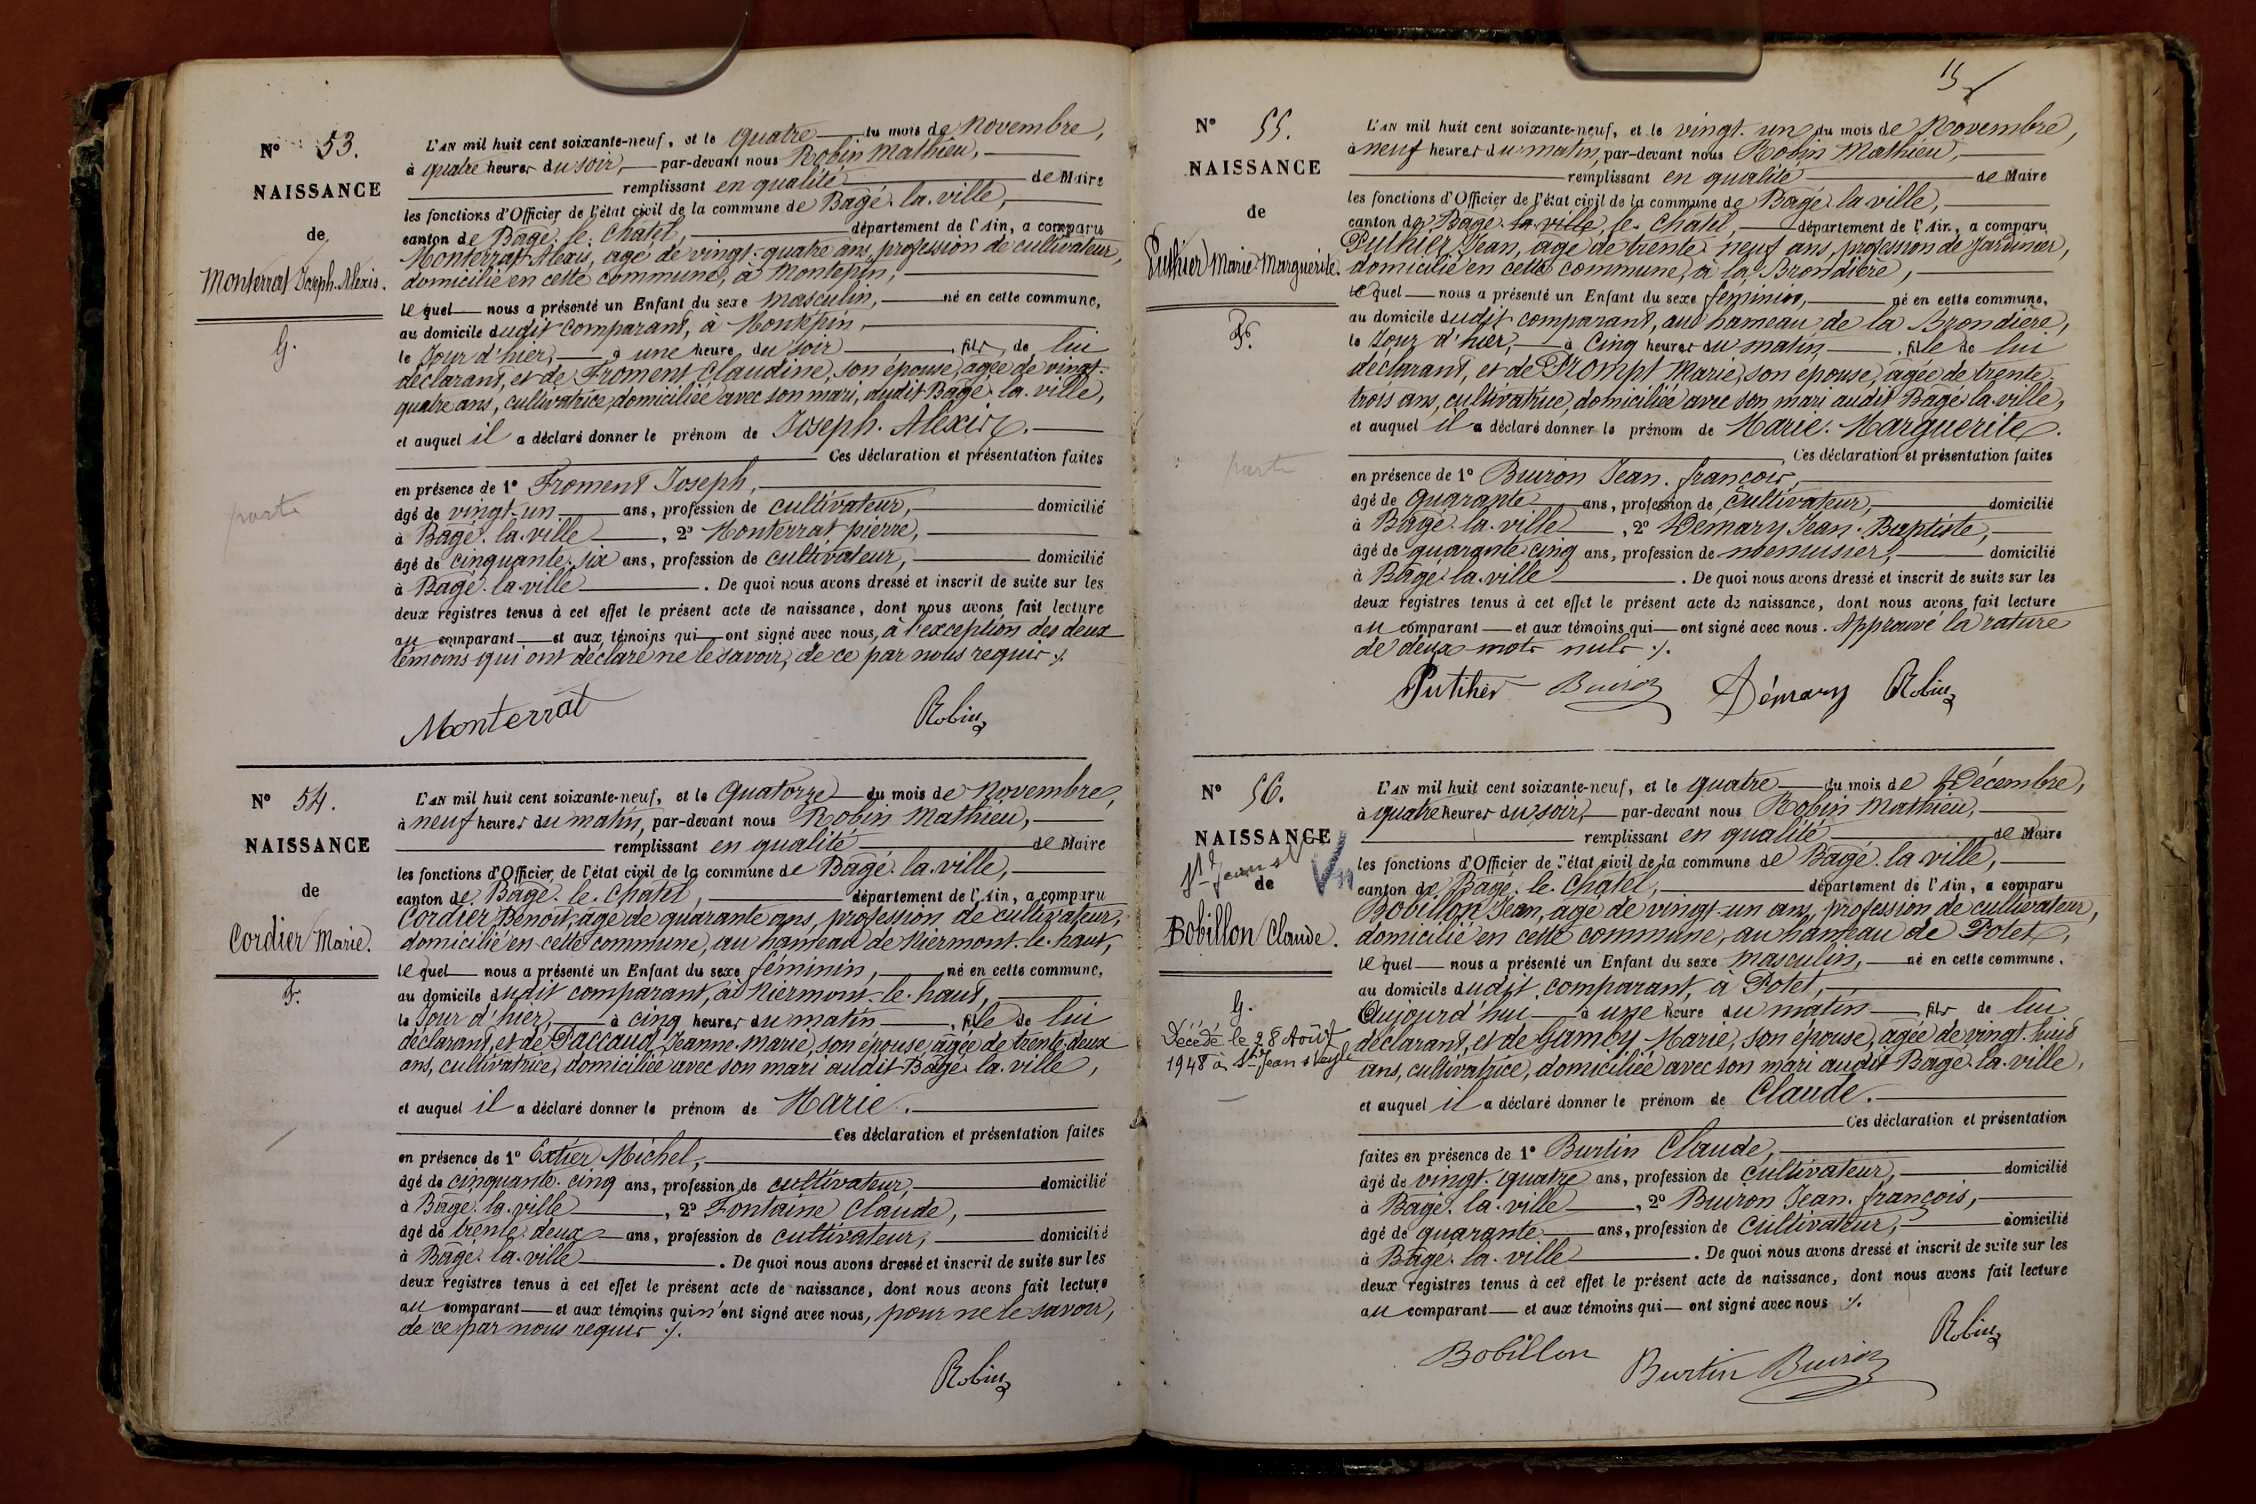 N° 53.
NAISSANCE
de
Monterrat Joseph-Alexis.
G.
L'AN mil huit cent soixante-neuf, et le Quatre du mois de Novembre,
à quatre heures du soir, par-devant nous Robin Mathieu,
remplissant en qualité de Maire
les fonctions d'Officier de l'état civil de la commune de Bagé-la-ville,
canton de Bagé-le-Chatel, département de l'Ain, a comparu
Monterrat Alexis, âgé de vingt-quatre ans, profession de cultivateur,
domicilié en cette commune, à Montepin,
lequel nous a présenté un Enfant du sexe masculin, né en cette commune,
au domicile dudit comparant, à Montepin,
le Jour d'hier, à une heure du soir, fils de lui
déclarant, et de Froment Claudine, son épouse, âgée de vingt-
quatre ans, cultivatrice, domiciliée avec son mari, audit Bagé-la-ville,
et auquel il a déclaré donner le prénom de Joseph-Alexis.
Ces déclaration et présentation faites
en présence de 1° Froment Joseph,
âgé de vingt-un ans, profession de cultivateur, domicilié
à Bagé-la-ville, 2° Monterrat pierre,
âgé de cinquante-six ans, profession de cultivateur, domicilié
à Bagé-la-ville. De quoi nous avons dressé et inscrit de suite sur les
deux registres tenus à cet effet le présent acte de naissance, dont nous avons fait lecture
au comparant et aux témoins qui ont signé avec nous, à l'exception des deux
témoins qui ont déclaré ne le savoir, de ce par nous requis ./.
Monterrat Robin
N° 54.
NAISSANCE
de
Cordier Marie.
F.
L'AN mil huit cent soixante-neuf, et le Quatorze du mois de Novembre,
à neuf heures du matin, par-devant nous Robin Mathieu,
remplissant en qualité de Maire
les fonctions d'Officier de l'état civil de la commune de Bagé-la-ville,
canton de Bagé-le-Chatel, département de l'Ain, a comparu
Cordier Benoit, âgé de quarante ans, profession de cultivateur,
domicilié en cette commune, au hameau de Niermont-le-haut,
lequel nous a présenté un Enfant du sexe féminin, né en cette commune,
au domicile dudit comparant, à Niermont-le-haut,
le Jour d'hier, à cinq heures du matin, fille de lui
déclarant, et de Paccaud Jeanne-Marie, son épouse, âgée de trente-deux
ans, cultivatrice, domiciliée avec son mari audit Bagé-la-ville,
et auquel il a déclaré donner le prénom de Marie.
Ces déclaration et présentation faites
en présence de 1° Extier Michel,
âgé de cinquante-cinq ans, profession de cultivateur, domicilié
à Bagé-la-ville, 2° Fontaine Claude,
âgé de trente-deux ans, profession de cultivateur, domicilié
à Bagé-la-ville. De quoi nous avons dressé et inscrit de suite sur les
deux registres tenus à cet effet le présent acte de naissance, dont nous avons fait lecture
au comparant et aux témoins qui n'ont signé avec nous, pour ne le savoir,
de ce par nous requis ./.
Robin
15
N° 55.
NAISSANCE
de
Puthier Marie-Marguerite.
F.
L'AN mil huit cent soixante-neuf, et le vingt-un du mois de Novembre,
à neuf heures du matin, par-devant nous Robin Mathieu,
remplissant en qualité de Maire
les fonctions d'Officier de l'état civil de la commune de Bagé-la-ville,
canton de Bagé-la-ville, le-Chatel, département de l'Ain, a comparu
Puthier Jean, âgé de trente-neuf ans, profession de Jardinier,
domicilié en cette commune, à la Brondière,
lequel nous a présenté un Enfant du sexe féminin, né en cette commune,
au domicile dudit comparant, au hameau de la Brondière,
le Jour d'hier, à cinq heures du matin, fille de lui
déclarant, et de Prompt Marie, son épouse, âgée de trente-
trois ans, cultivatrice, domiciliée avec son mari audit Bagé-la-ville,
et auquel il a déclaré donner le prénom de Marie-Marguerite.
Ces déclaration et présentation faites
en présence de 1° Buiron Jean-françois,
âgé de quarante ans, profession de cultivateur, domicilié
à Bagé-la-ville, 2° Demary Jean-Baptiste,
âgé de quarante-cinq ans, profession de menuisier, domicilié
à Bagé-la-ville. De quoi nous avons dressé et inscrit de suite sur les
deux registres tenus à cet effet le présent acte de naissance, dont nous avons fait lecture
au comparant et aux témoins qui ont signé avec nous. Approuvé la rature
de deux mots nuls ./.
Puthier Buiron Démary Robin
N° 56.
NAISSANCE
St Jean s/
de
Bobillon Claude.
G.
Décédé le 28 Août
1948 à St Jean s Veyle
L'AN mil huit cent soixante-neuf, et le quatre du mois de Décembre,
à quatre heures du soir, par-devant nous Robin Mathieu,
remplissant en qualité de Maire
les fonctions d'Officier de l'état civil de la commune de Bagé-la-ville,
canton de Bagé-le-Chatel, département de l'Ain, a comparu
Bobillon Jean, âgé de vingt-un ans, profession de cultivateur,
domicilié en cette commune, au hameau de Potet,
lequel nous a présenté un Enfant du sexe masculin, né en cette commune,
au domicile dudit comparant, à Potet,
Aujourd'hui à une heure du matin fils de lui
déclarant, et de Gamby Marie, son épouse, âgée de vingt-huit
ans, cultivatrice, domiciliée avec son mari audit Bagé-la-ville,
et auquel il a déclaré donner le prénom de Claude.
Ces déclaration et présentation
faites en présence de 1° Burtin Claude,
âgé de vingt-quatre ans, profession de cultivateur, domicilié
à Bagé-la-ville, 2° Buiron Jean-françois,
âgé de quarante ans, profession de cultivateur, domicilié
à Bagé-la-ville. De quoi nous avons dressé et inscrit de suite sur les
deux registres tenus à cet effet le présent acte de naissance, dont nous avons fait lecture
au comparant et aux témoins qui ont signé avec nous ./.
Bobillon Burtin Buiron Robin